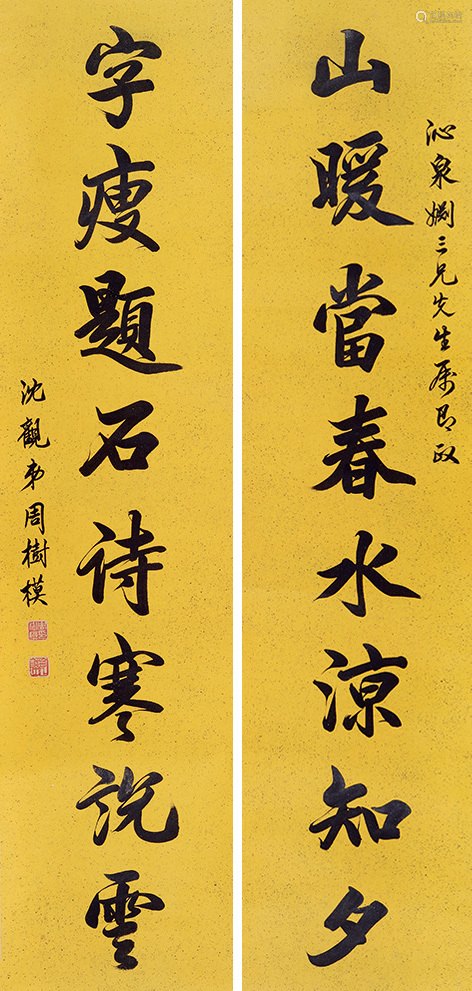 沁泉姻三兄先生属即政
山暖當春水涼知夕
字瘦題石诗寒說雲
沈觀弟周樹模